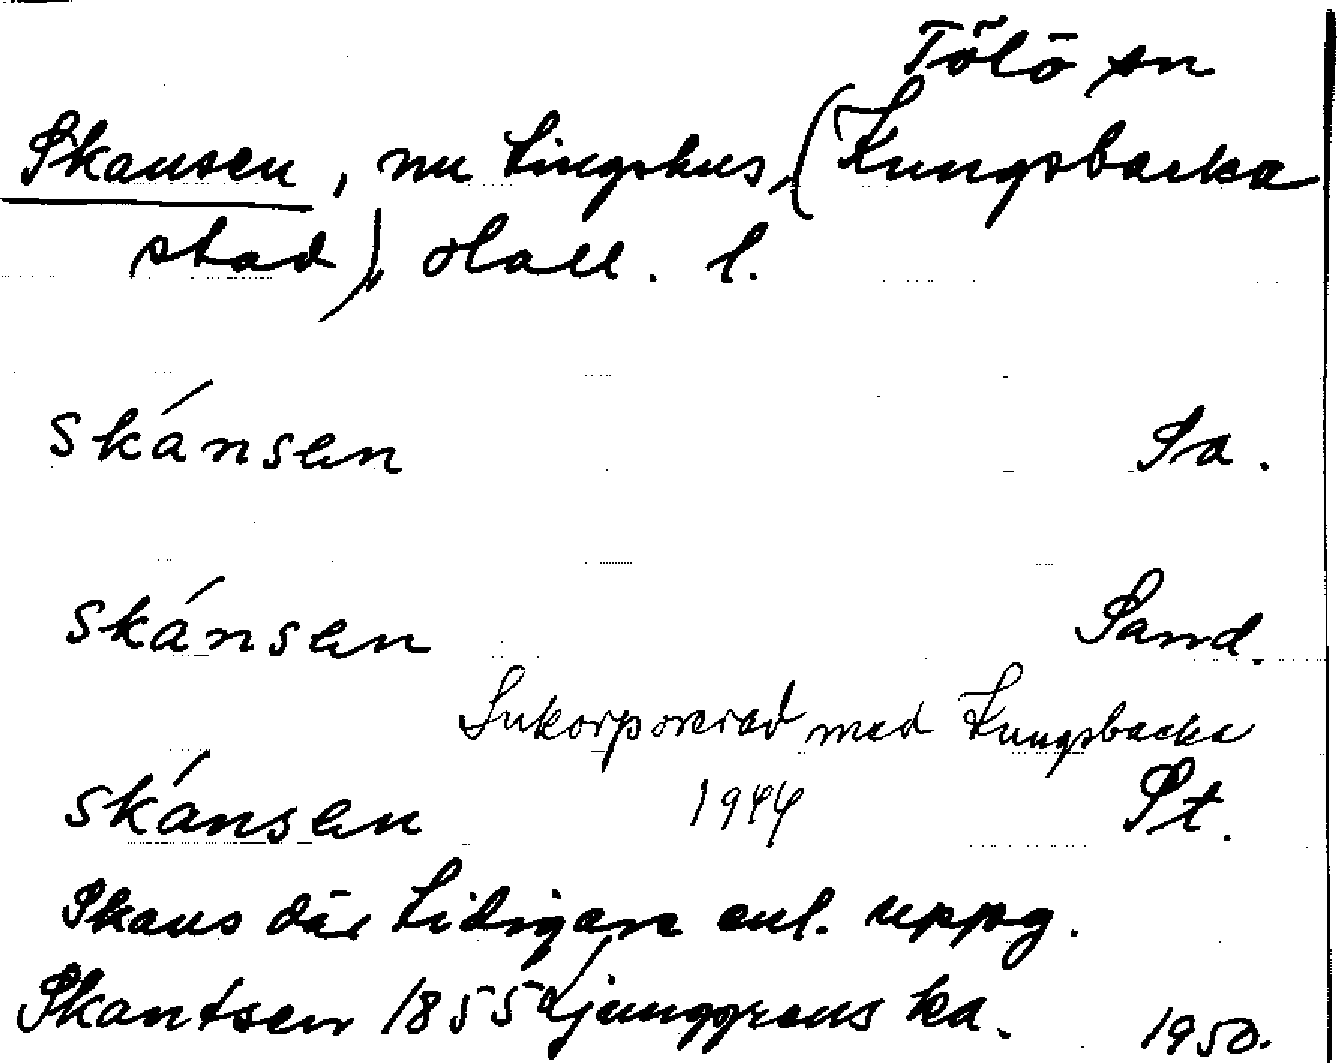 Tölö sn
Skansen, nu tingshus, (Kungsbacka
stad), Hall. l.
skánsen Sa.
skánsen Sand.
Inkorporerad med Kungsbacka
1944
skánsen St.
Skans där tidigare enl. uppg.
Skantsen 1855 Ljunggrens ka. 1950.